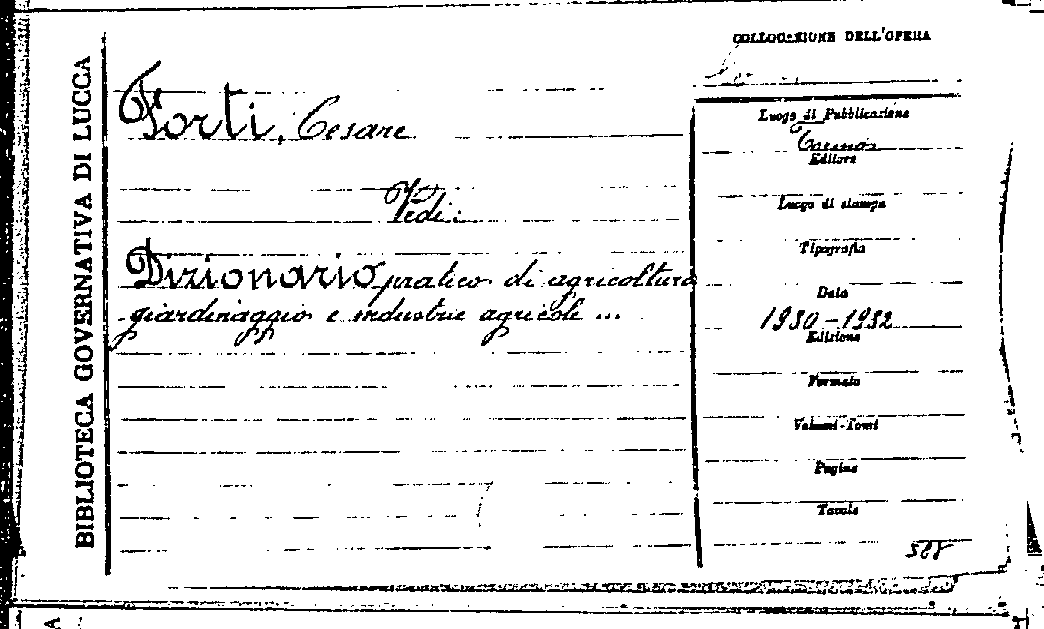 BIBLIOTECA GOVERNATIVA DI LUCCA
Forti, Cesare
Vedi:
Dizionario pratico di agricoltura
giardinaggio e industrie agricole ...
COLLOCAZIONE DELL'OPERA
Luogo di Pubblicazione
Torino
Editore
Luogo di stampa
Tipografia
Data
1930-1932
Edizione
Formato
Volumi-Tomi
Pagine
Tavole
A